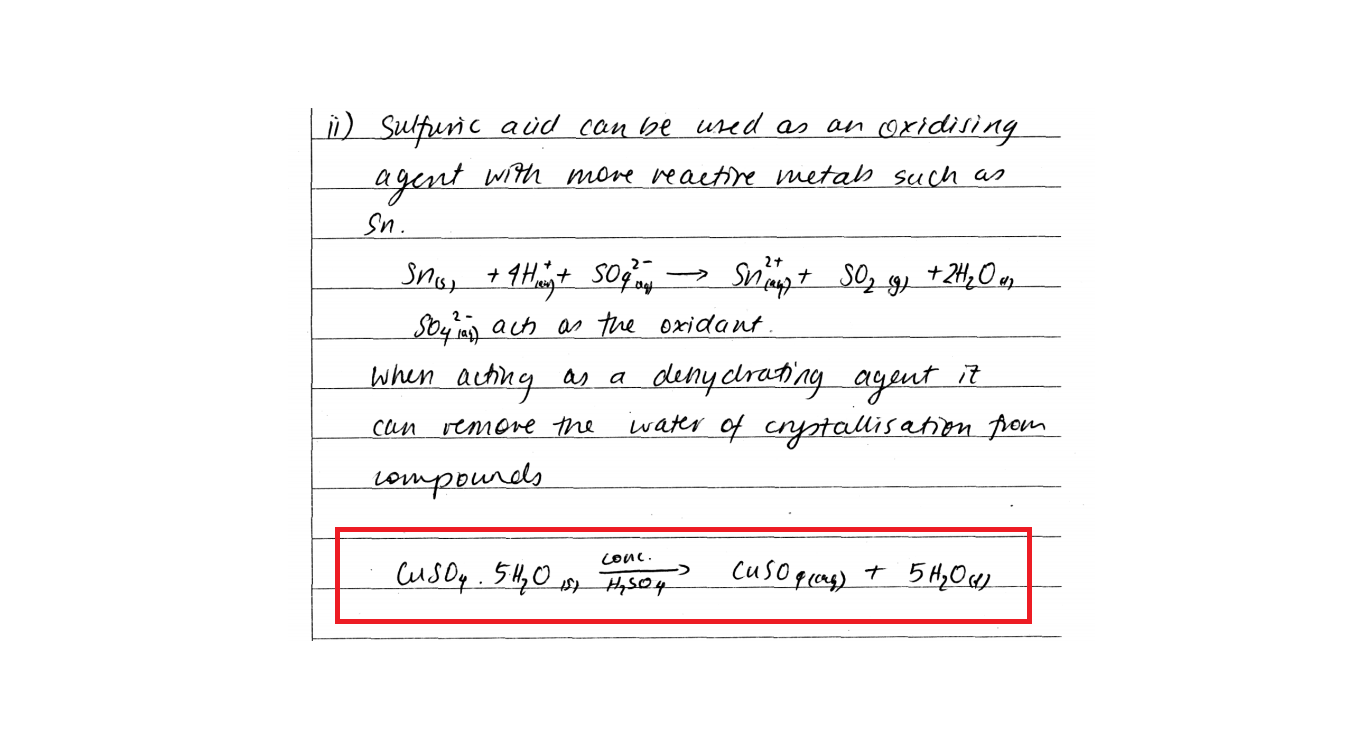 ii) Sulfuric acid can be used as an oxidising
agent with more reactive metals such as
Sn.
Sn(s) + 4H⁺(aq) + SO₄²⁻(aq) → Sn²⁺(aq) + SO₂(g) + 2H₂O(l)
SO₄²⁻(aq) acts as the oxidant.
When acting as a dehydrating agent it
can remove the water of crystallisation from
compounds
CuSO₄.5H₂O(s) —conc. H₂SO₄→ CuSO₄(aq) + 5H₂O(l)